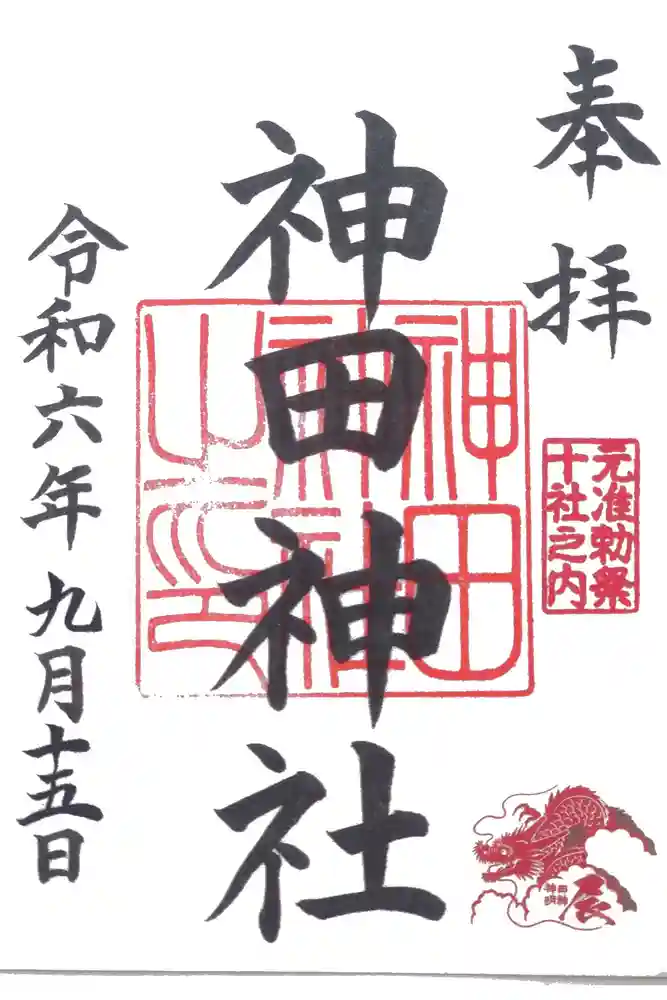 奉拝
元准勅祭
十社之内
神田神社
神田
神社
之印
令和六年九月十五日
辰
神田
明神